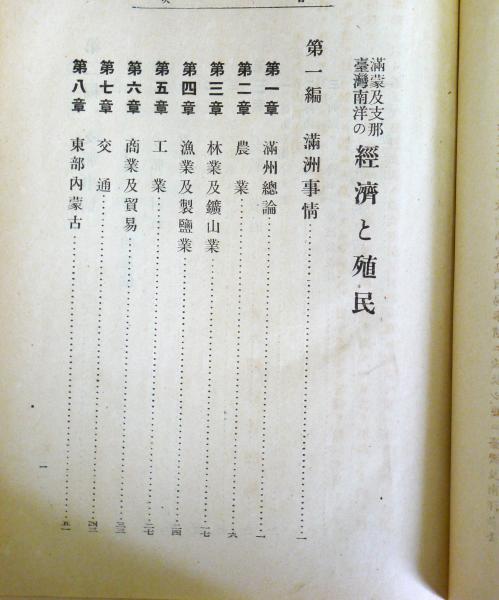 滿蒙及支那
臺灣南洋の
經濟と殖民
第一編 滿洲事情……一
第一章 滿州總論……一
第二章 農業……六
第三章 林業及鑛山業……一七
第四章 漁業及製鹽業……二四
第五章 工業……二七
第六章 商業及貿易……三三
第七章 交通……四二
第八章 東部內蒙古……五一
一